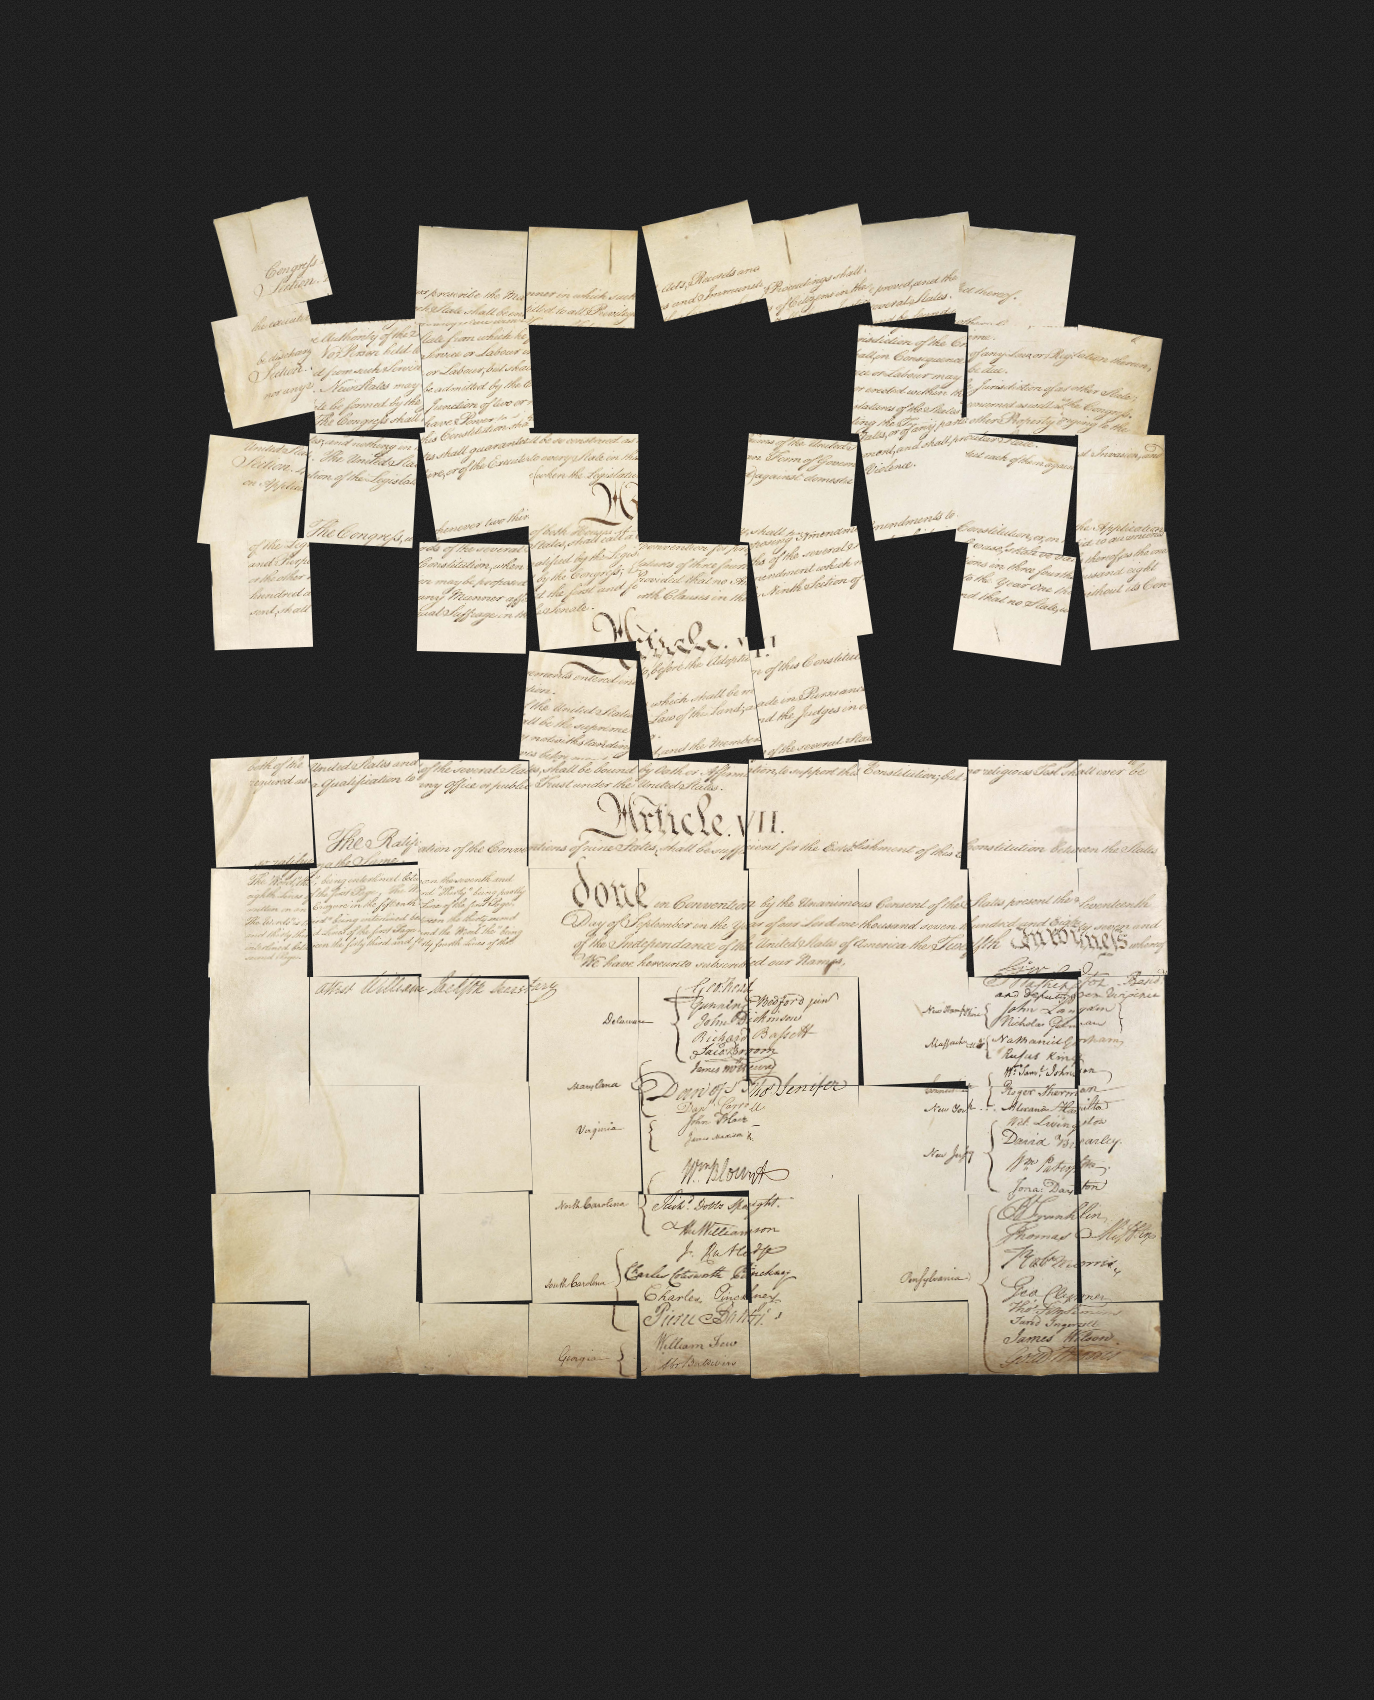 Congress
Section.
Acts, Records and Proceedings shall
prescribe the Manner in which such
proved, and the
State shall be
s and Immunit
of Citizens in the
several States.
Authority of the
State from which he
risdiction of the Crime.
No Person held
Service or Labour
of any Law or Regulation therein,
be discharg
d from such Service
or Labour, but shall
ce or Labour may
be due.
Section.
New States may
be admitted by the C
r erected within the
Jurisdiction of any other State;
nor any
be formed by the
Junction of two or
of the States
concerned as well as of the Congress.
The Congress shall
have Power to
ting the
other Property
United States
and nothing in
his Constitution sha
ll be so construed as
States, or of any
Section.
The United Sta
tes shall guarantee
to every State in this
Union a Form of Governm
ment, and shall
each of them against Invasion; and
on Applica
tion of the Legislat
ure, or of the Executive
(when the Legislature
against domestic
Violence.
The Congress,
whenever two thir
of both Houses
shall propose Amendments to
Constitution, or, on
the Application
of the Leg
of the several
States, shall call a
Convention for pro
posing Amendm
and Purpo
Constitution, when
ratified by the Legis
latures of three fourt
hs of the several S
ions in three fourths
thereof, as the one
or the other
may be proposed
by the Congress;
Provided that no
endment which
to the Year One tho
usand eight
hundred
any Manner aff
ect the first and fo
urth Clauses in the
Ninth Section of
nd that no State,
without its Con
sent, shall
ual Suffrage in the
Senate.
Article. VI.
entered in
to, before the Adopti
on of this Constitut
tion.
of the United States
which shall be m
ade in Pursuan
all be the supreme
Law of the Land;
nd the Judges in e
notwithstanding
, and the Member
of the several Sta
both of the United States and of the several States, shall be bound by Oath or Affirmation, to support this Constitution; but no religious Test shall ever be
required as a Qualification to any Office or public Trust under the United States.
Article. VII.
The Ratification of the Conventions of nine States, shall be sufficient for the Establishment of this Constitution between the States
so ratifying the Same.
The Word, "the," being interlined between the seventh and
eighth Lines of the first Page, The Word "Thirty" being partly
written on an Erazure in the fifteenth Line of the first Page,
The Words "is tried" being interlined between the thirty second
and thirty third Lines of the first Page and the Word "the" being
interlined between the forty third and forty fourth Lines of the
second Page.
done in Convention by the Unanimous Consent of the States present the Seventeenth
Day of September in the Year of our Lord one thousand seven hundred and Eighty seven and
of the Independance of the United States of America the Twelfth In witness whereof
We have hereunto subscribed our Names,
Attest William Jackson Secretary
Go: Washington Presidt
and deputy from Virginia
Delaware
Geo: Read
Gunning Bedford jun
John Dickinson
Richard Bassett
Jaco: Broom
Maryland
James McHenry
Dan of St Thos Jenifer
Danl Carroll
Virginia
John Blair
James Madison Jr.
North Carolina
Wm Blount
Richd. Dobbs Spaight.
Hu Williamson
South Carolina
J. Rutledge
Charles Cotesworth Pinckney
Charles Pinckney
Pierce Butler.
Georgia
William Few
Abr Baldwin
New Hampshire
John Langdon
Nicholas Gilman
Massachusetts
Nathaniel Gorham
Rufus King
Connecticut
Wm. Saml. Johnson
Roger Sherman
New York
Alexander Hamilton
New Jersey
Wil: Livingston
David Brearley.
Wm Paterson.
Jona: Dayton
Pensylvania
B Franklin
Thomas Mifflin
Robt Morris
Geo. Clymer
Thos. FitzSimons
Jared Ingersoll
James Wilson.
Gouv Morris